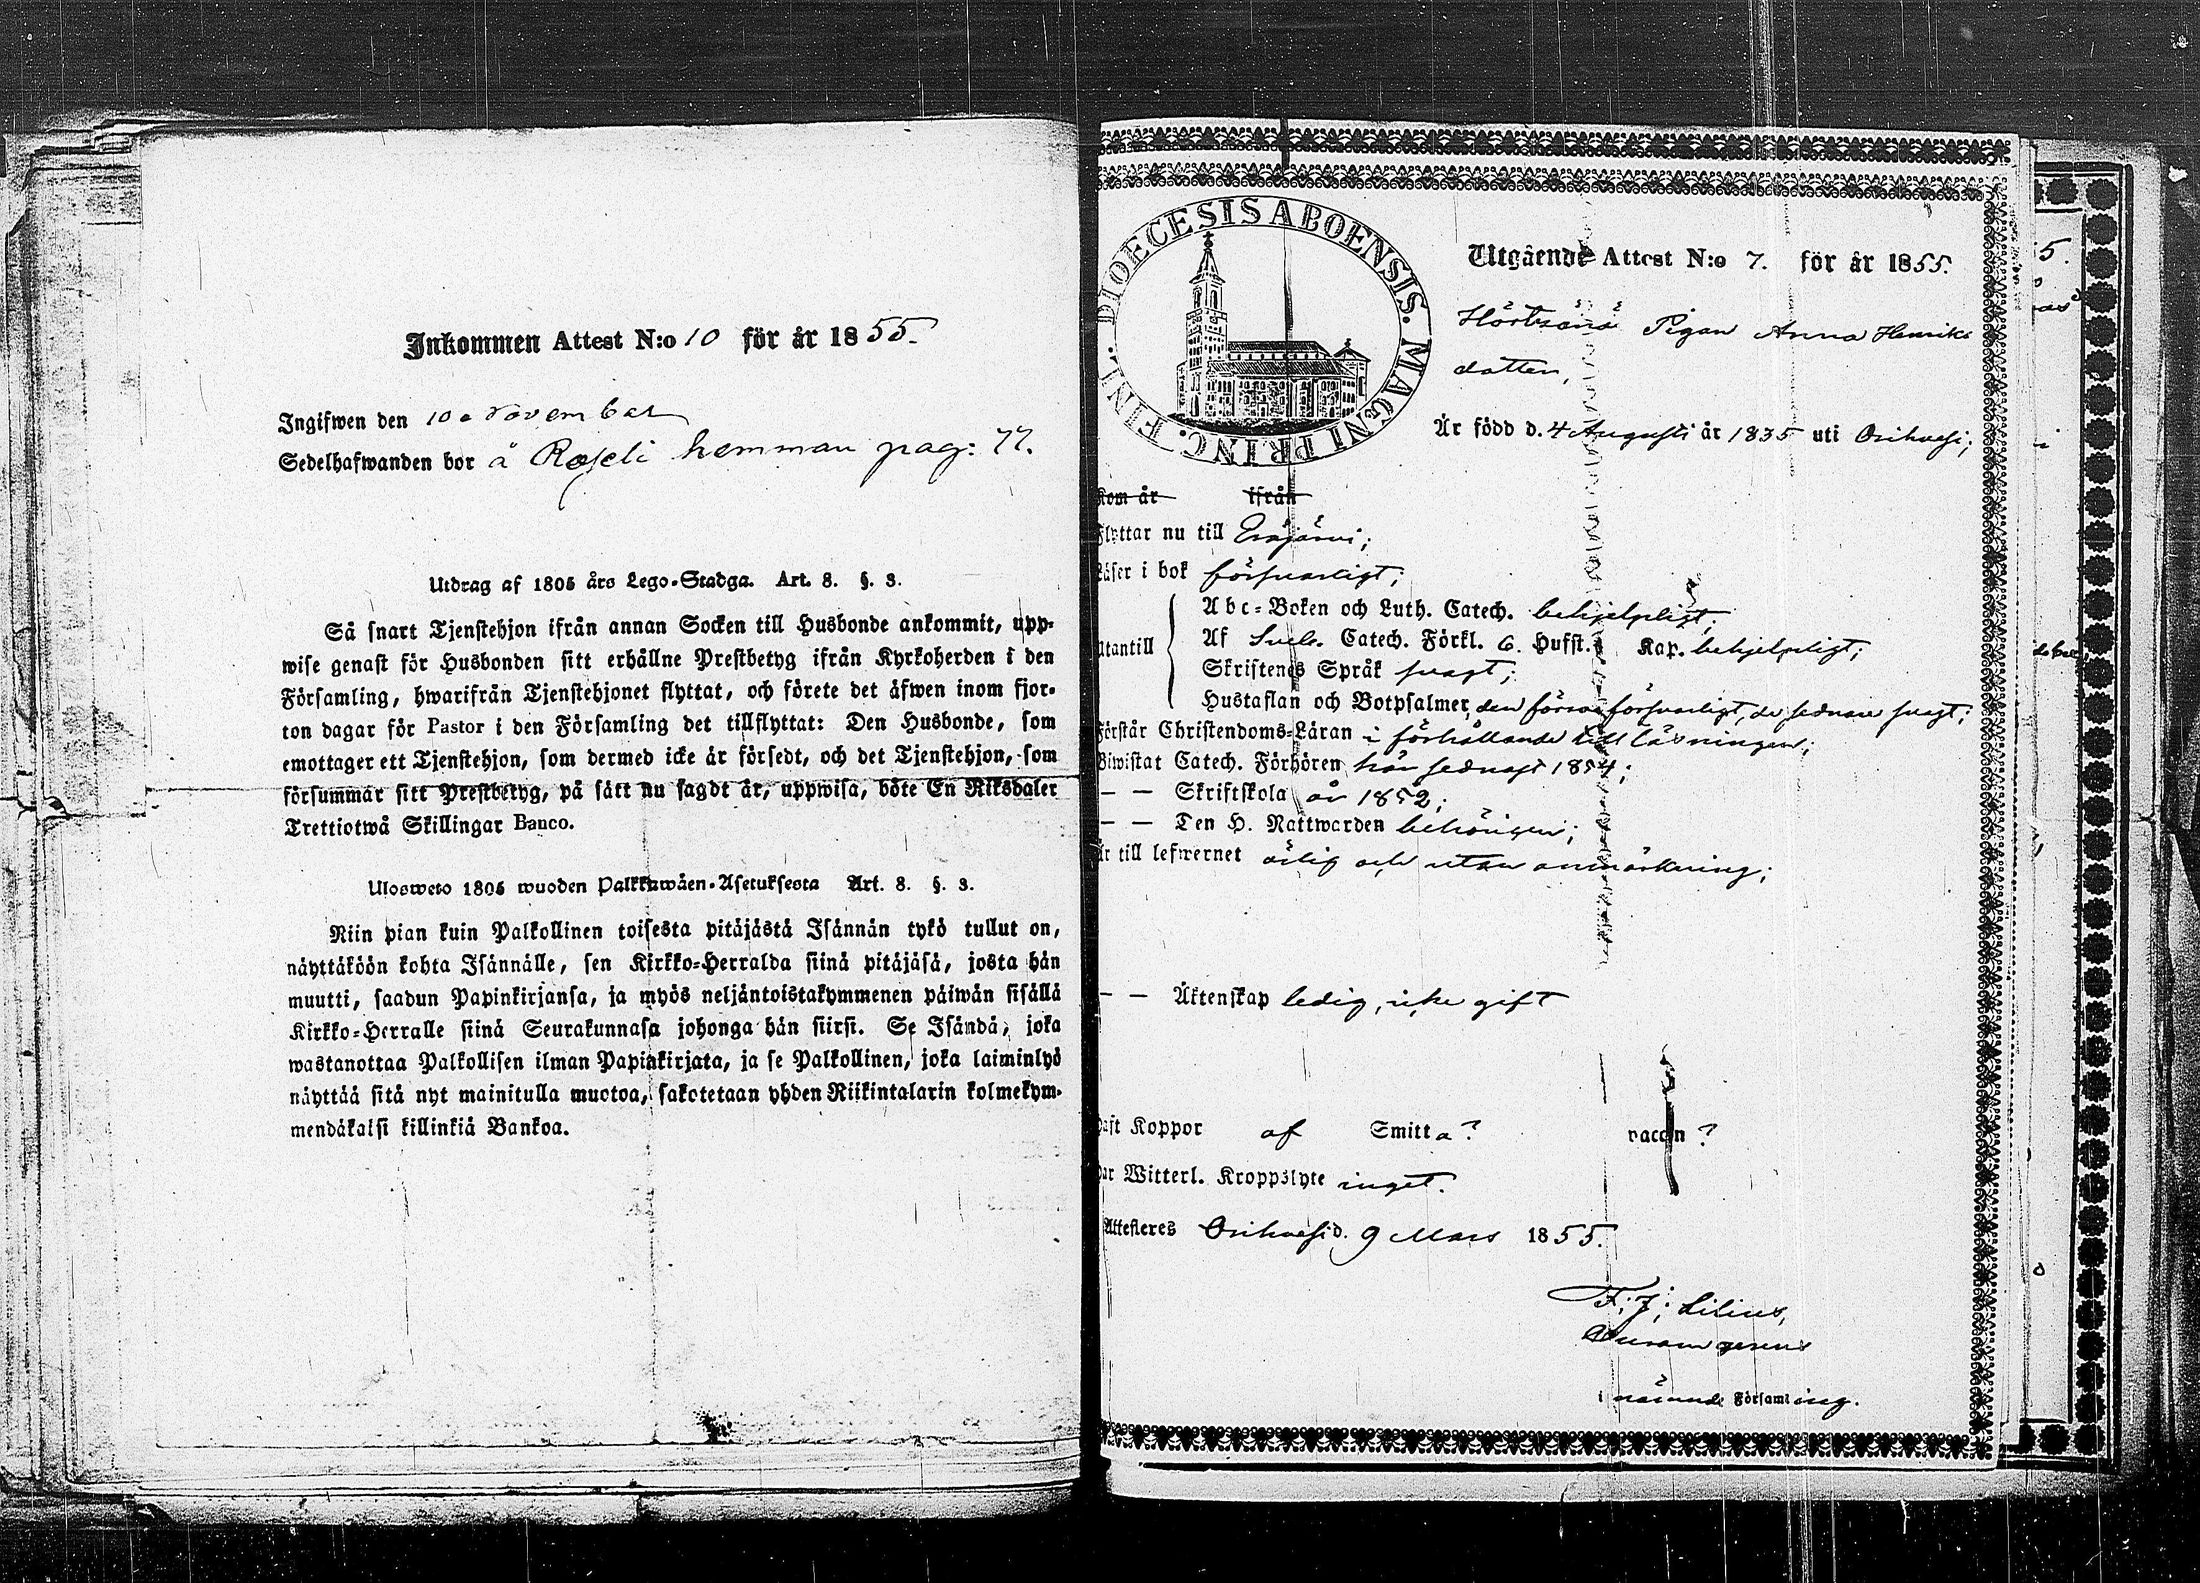 Inkommen Attest N:o 10 för år 1855.
Ingifwen den 10 November
Sedelhafwanden bor å Rapeli hemman pag: 77.
Utdrag af 1805 års Lego-Stadga. Art. 8. §. 3.
Så snart Tjenstehjon ifrån annan Socken till Husbonde ankommit, upp-
wise genast för Husbonden sitt erhållne Prestbetyg ifrån Kyrkoherden i den
Församling, hwarifrån Tjenstehjonet flyttat, och förete det äfwen inom fjor-
ton dagar för Pastor i den Församling det tillflyttat: Den Husbonde, som
emottager ett Tjenstehjon, som dermed icke är försedt, och det Tjenstehjon, som
försummar sitt Prestbetyg, på sätt nu sagdt är, uppwisa, böte En Riksdaler
Trettiotwå Skillingar Banco.
Ulosweto 1805 wuoden Palkkawäen-Asetuksesta Art. 8. §. 3.
Niin pian kuin Palkollinen toisesta pitäjästä Isännän tykö tullut on,
näyttäköön kohta Isännälle, sen Kirkko-Herralda siinä pitäjäsä, josta hän
muutti, saadun Papinkirjansa, ja myös neljäntoistakymmenen päiwän sisällä
Kirkko-Herralle siinä Seurakunnasa johonga hän siirsi. Se Isändä, joka
wastanottaa Palkollisen ilman Papinkirjata, ja se Palkollinen, joka laiminlyö
näyttää sitä nyt mainitulla muotoa, sakotetaan yhden Riikintalarin kolmekym-
mendäkaksi killinkiä Bankoa.
DIOECESIS ABOENSIS. MAGNI PRINC. FINL.
Utgående Attest N:o 7. för år 1855.
Pigan Anna Henriks
dotter,
Är född d. 4 Augusti år 1835 uti Orihvesi;
Kom år ifrån
Flyttar nu till Eräjärvi;
Läser i bok försvarligt;
Utantill
Abc-Boken och Luth. Catech. behjelpligt;
Af Sveb. Catech. Förkl. 6. Hufst. Kap. behjelpligt;
Skriftenes Språk svagt;
Hustaflan och Botpsalmer, den förra försvarligt, de sednare svagt;
Förstår Christendoms-Läran i förhållande till läsningen;
Biwistat Catech. Förhören här sednast 1854;
— — Skriftskola år 1852;
— — Den H. Nattwarden behörigen;
Är till lefwernet ärlig och utan anmärkning;
— — Äktenskap ledig, icke gift
Haft Koppor af Smitta? vaccin?
Har Witterl. Kroppslyte inget.
Attesteres Orihvesi d. 9 Mars 1855.
F. J. Lilius,
Curam gerens
i nämnde Församling.